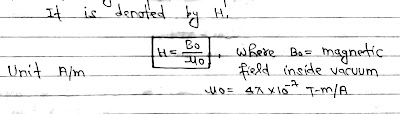 It is denoted by H.
H = B₀/μ₀, where B₀ = magnetic
Unit A/m field inside vacuum
μ₀ = 4π×10⁻⁷ T-m/A